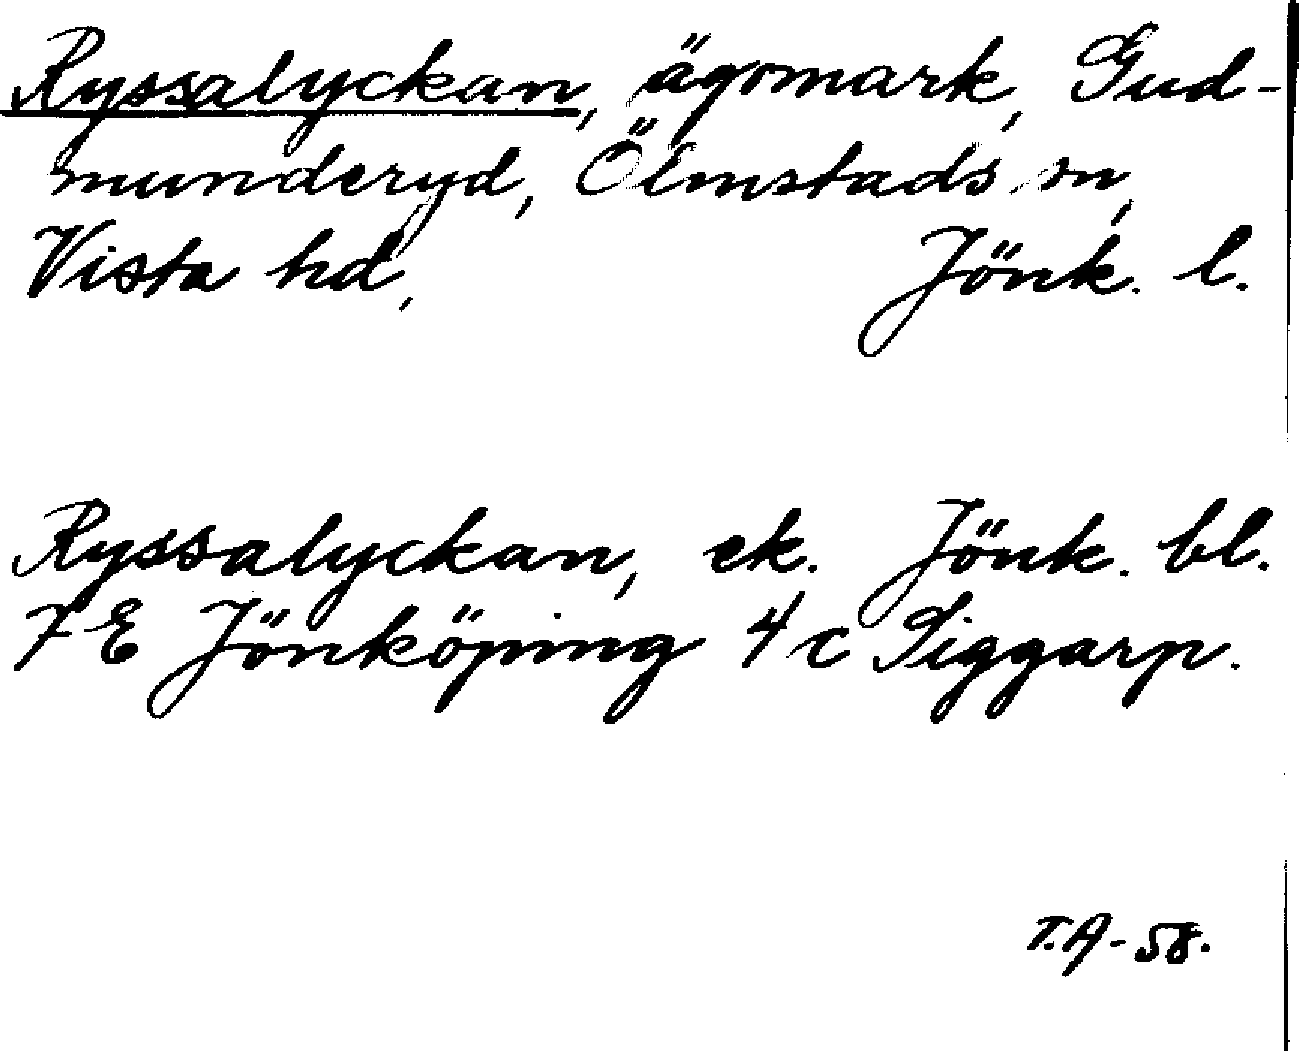 Ryssalyckan, ägomark, Gud-
munderyd, Ölmstads sn,
Vista hd, Jönk. l.
Ryssalyckan, ek. Jönk. bl.
7 E Jönköping 4 c Siggarp.
T.A - 58.